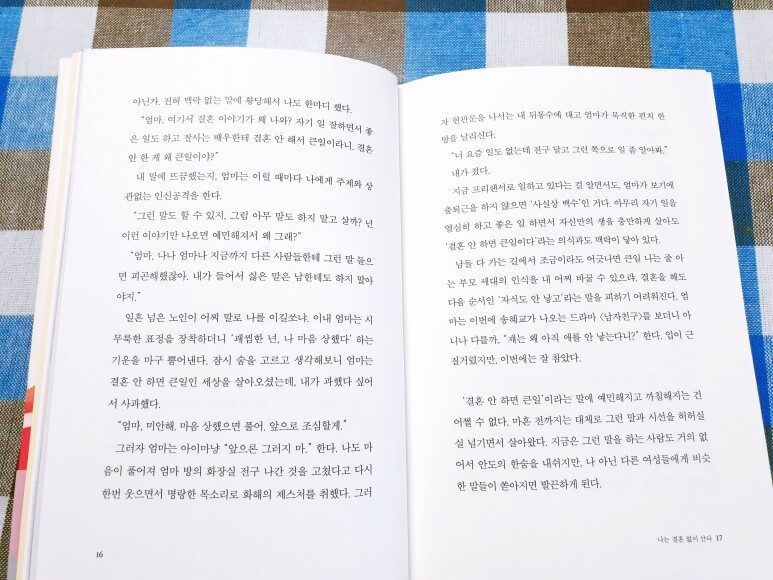 아닌가. 전혀 맥락 없는 말에 황당해서 나도 한마디 했다.
“엄마, 여기서 결혼 이야기가 왜 나와? 자기 일 잘하면서 좋
은 일도 하고 잘사는 배우한테 결혼 안 해서 큰일이라니. 결혼
안 한 게 왜 큰일이야?”
내 말에 뜨끔했는지, 엄마는 이럴 때마다 나에게 주제와 상
관없는 인신공격을 한다.
“그런 말도 할 수 있지, 그럼 아무 말도 하지 말고 살까? 넌
이런 이야기만 나오면 예민해져서 왜 그래?”
“엄마, 나나 엄마나 지금까지 다른 사람들한테 그런 말 들으
면 피곤해했잖아. 내가 들어서 싫은 말은 남한테도 하지 말아
야지.”
일흔 넘은 노인이 어찌 말로 나를 이길쏘냐. 이내 엄마는 시
무룩한 표정을 장착하더니 ‘괘씸한 년, 나 마음 상했다’ 하는
기운을 마구 뿜어낸다. 잠시 숨을 고르고 생각해보니 엄마는
결혼 안 하면 큰일인 세상을 살아오셨는데, 내가 과했다 싶어
서 사과했다.
“엄마, 미안해. 마음 상했으면 풀어. 앞으로 조심할게.”
그러자 엄마는 아이마냥 “앞으론 그러지 마.” 한다. 나도 마
음이 풀어져 엄마 방의 화장실 전구 나간 것을 고쳤다고 다시
한번 웃으면서 명랑한 목소리로 화해의 제스처를 취했다. 그러
16
자 현관문을 나서는 내 뒤통수에 대고 엄마가 묵직한 펀치 한
방을 날리신다.
“너 요즘 일도 없는데 전구 달고 그런 쪽으로 일 좀 알아봐.”
내가 졌다.
지금 프리랜서로 일하고 있다는 걸 알면서도, 엄마가 보기에
출퇴근을 하지 않으면 ‘사실상 백수’인 거다. 아무리 자기 일을
열심히 하고 좋은 일 하면서 자신만의 생을 충만하게 살아도
‘결혼 안 하면 큰일이다’라는 의식과도 맥락이 닿아 있다.
남들 다 가는 길에서 조금이라도 어긋나면 큰일 나는 줄 아
는 부모 세대의 인식을 내 어찌 바꿀 수 있으랴. 결혼을 해도
다음 순서인 ‘자식도 안 낳고’라는 말을 피하기 어려워진다. 엄
마는 이번에 송혜교가 나오는 드라마 〈남자친구〉를 보더니 아
니나 다를까, “쟤는 왜 아직 애를 안 낳는다니?” 한다. 입이 근
질거렸지만, 이번에는 잘 참았다.
‘결혼 안 하면 큰일’이라는 말에 예민해지고 까칠해지는 건
어쩔 수 없다. 마흔 전까지는 대체로 그런 말과 시선을 허허실
실 넘기면서 살아왔다. 지금은 그런 말을 하는 사람도 거의 없
어서 안도의 한숨을 내쉬지만, 나 아닌 다른 여성들에게 비슷
한 말들이 쏟아지면 발끈하게 된다.
나는 결혼 없이 산다 17